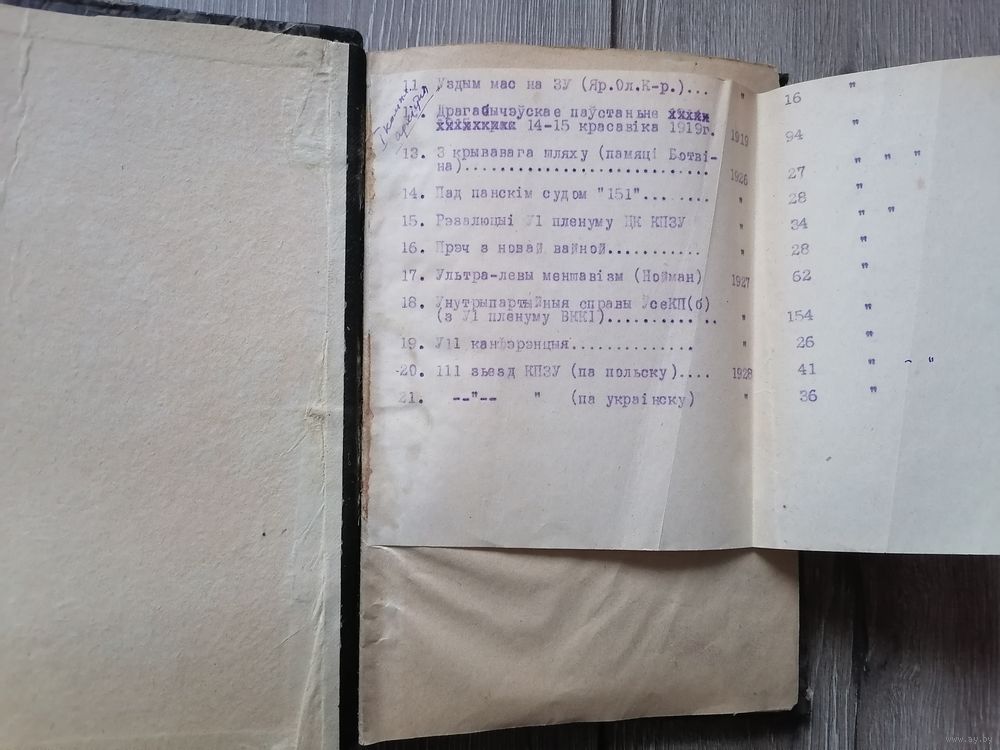 11. Уздым мас на ЗУ (Яр.Ол.К-р.)... " 16 "
Драгабычэўскае паўстаньне ххххх
14-15 красавіка 1919г. 1919 94 "
13. З крывавага шляху (памяці Ботві-
на)............................ 1926 27 " " "
14. Пад панскім судом "151"........ " 28 "
15. Рэзалюцыі У1 пленуму ЦК КПЗУ " 34 " "
16. Прэч з новай вайной........... " 28 "
17. Ультра-левы меншавізм (Нойман) 1927 62 "
18. Унутрыпартыйныя справы УсеКП(б)
(з У1 пленуму ВККІ)............. " 154 "
19. У11 канфэрэнцыя.............. " 26 "
20. 111 зьезд КПЗУ (па польску).... 1928 41 " - "
21. --"-- " (па украінску) " 36 "
www.ay.by